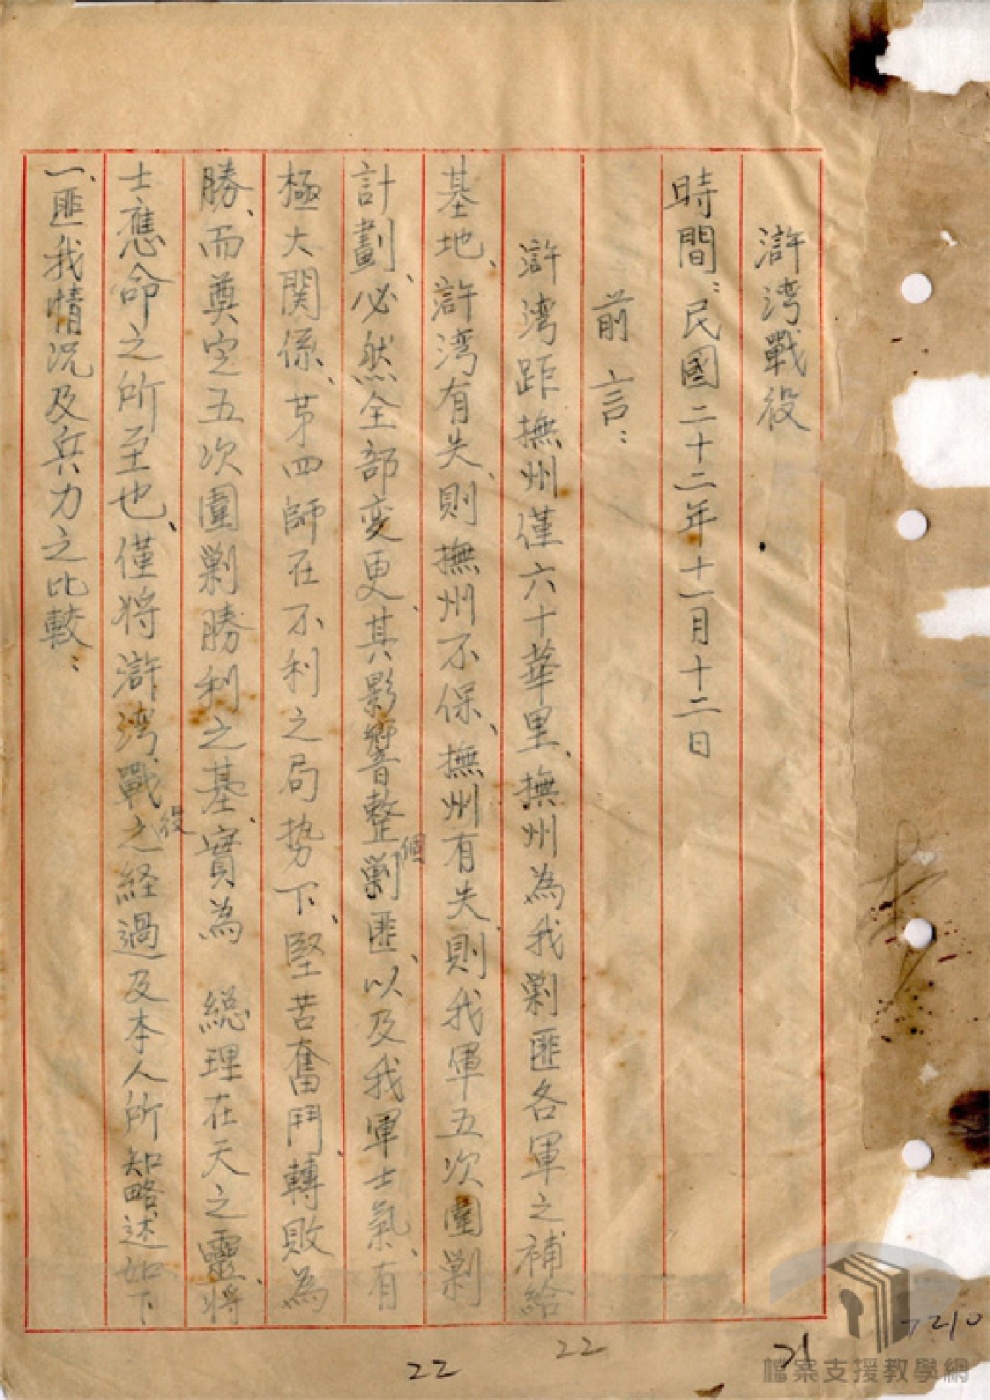 滸湾戰役
時間：民國二十二年十一月十二日
前言：
滸湾距撫州僅六十華里、撫州為我剿匪各軍之補給
基地、滸湾有失、則撫州不保、撫州有失、則我軍五次圍剿
計劃、必然全部変更、其影響整個剿匪、以及我軍士氣、有
極大関係、苐四師在不利之局势下、堅苦奮鬥、轉敗為
勝、而奠定五次圍剿勝利之基、實為　総理在天之靈、將
士應命之所至也、僅將滸湾戰役之経過及本人所知略述如下
一、匪我情况及兵力之比較：
22
22
21
7210
檔案支援教學網